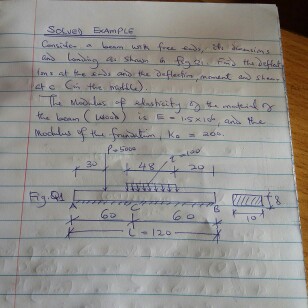 SOLVED EXAMPLE
Consider a beam with free ends, its dimensions
and loading as shown in fig Q1. Find the deflect
ions at the ends and the deflection, moment and shear
at C (in the middle).
The Modulus of elasticity of the material of
the beam (wood) is E = 1.5x10⁶, and the
Modulus of the foundation, K₀ = 200.
P=5000
q=100
30
48
20
Fig. Q1
A
C
B
60
60
8
10
L = 120